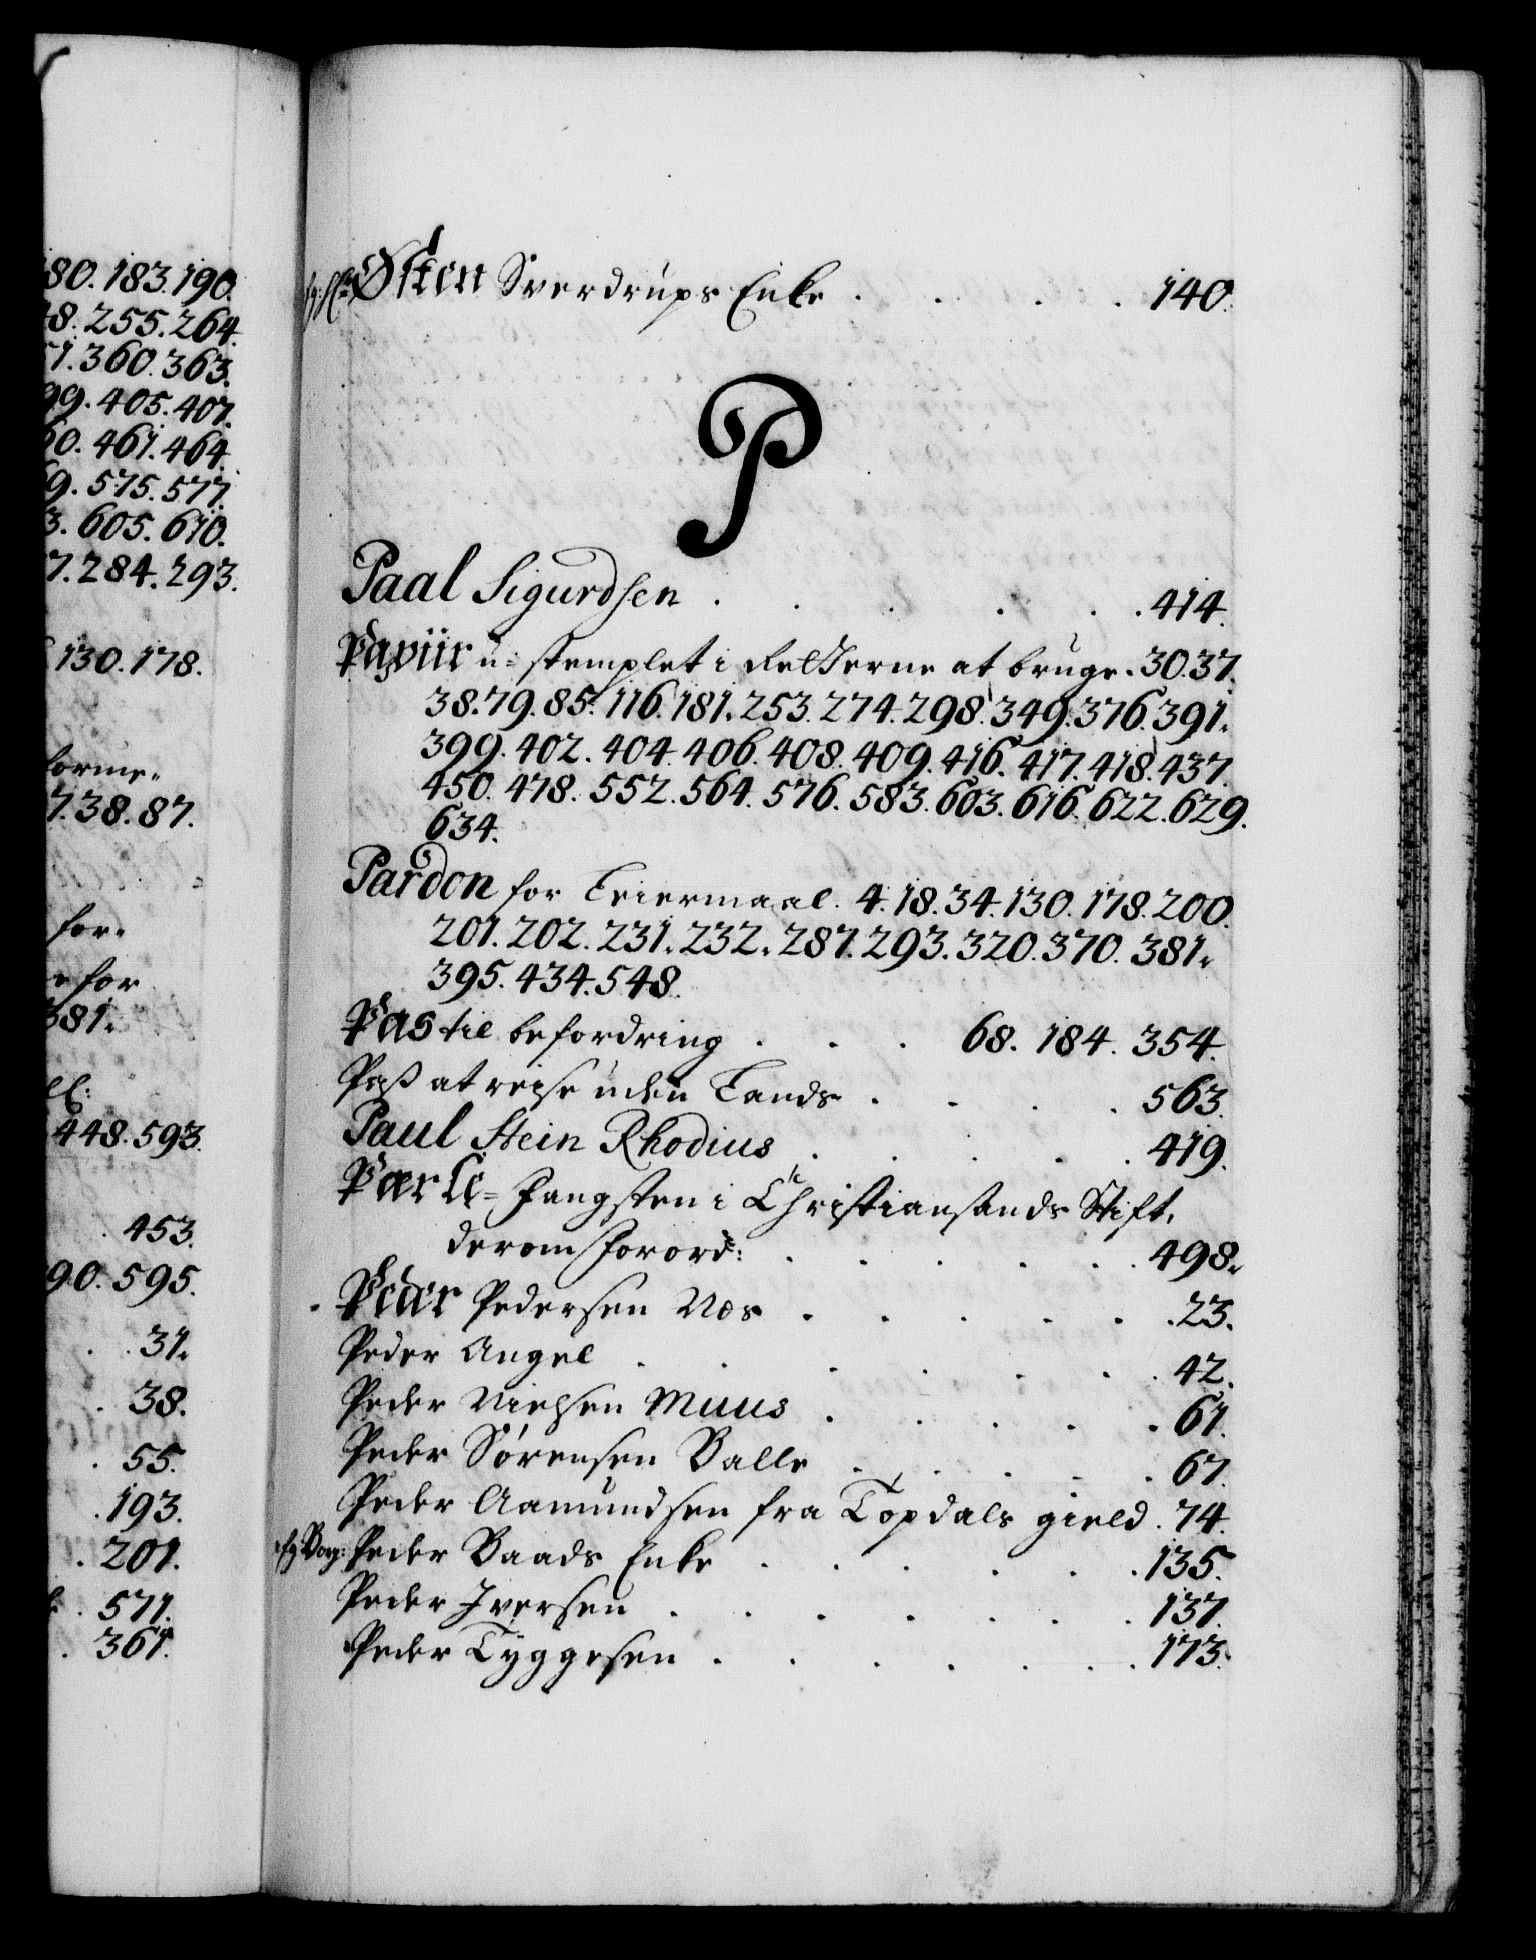 80.183.190.
8.255.264.
1.360.363.
99.405.407.
60.461.464.
9.575.577.
3.605.610.
7.284.293.
130.178.
forme.
7.38.87.
for.
for
381.
448.593.
453.
90.595.
31.
38.
55.
193.
201.
571.
361.
Østen Sverdrups Enke . . . . 140.
P
Paal Sigurdsen . . . . . . 414.
Papiir u-stemplet i Retterne at bruge. 30.37.
38.79.85.116.181.253.274.298.349.376.391.
399.402.404.406.408.409.416.417.418.437.
450.478.552.564.576.583.603.616.622.629.
634.
Pardon for Leiermaal. 4.18.34.130.178.200.
201.202.231.232.287.293.320.370.381.
395.434.548.
Pas til befordring . . . 68. 184. 354.
Pass at reise uden Lands . . . . 563.
Paul Stein Rhodius . . . . . 419.
Pærle-Fangsten i Christiansands Stift,
derom Forord: . . . . . 498.
Peder Pedersen Næs . . . . . 23.
Peder Angel . . . . . . 42.
Peder Nielsen Muus . . . . . 61.
Peder Sørensen Balle . . . . . 67.
Peder Aamundsen fra Topdals gield . 74.
Peder Baads Enke . . . . . . 135.
Peder Iversen . . . . . . . 137.
Peder Tyggesen . . . . . . 173.